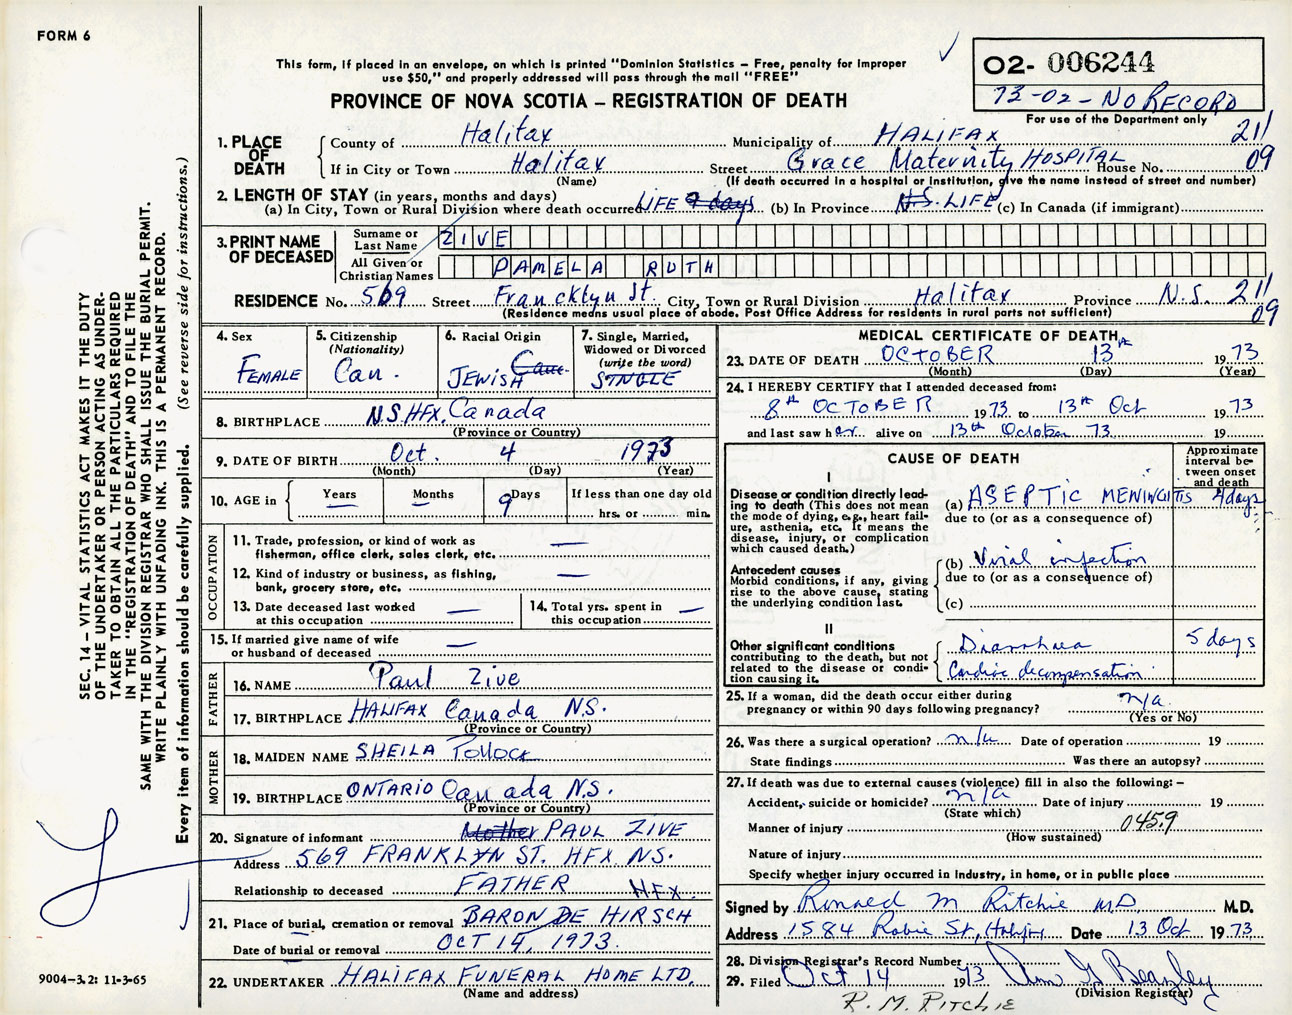 FORM 6
This form, if placed in an envelope, on which is printed "Dominion Statistics – Free, penalty for improper
use $50," and properly addressed will pass through the mail "FREE"
PROVINCE OF NOVA SCOTIA – REGISTRATION OF DEATH
02- 006244
73-02 - NO RECORD
For use of the Department only
211
09
1. PLACE OF DEATH
County of Halifax Municipality of HALIFAX
If in City or Town Halifax Street Grace Maternity HOSPITAL House No.
(Name) (If death occurred in a hospital or institution, give the name instead of street and number)
2. LENGTH OF STAY (in years, months and days)
(a) In City, Town or Rural Division where death occurred LIFE 9 days (b) In Province N.S. LIFE (c) In Canada (if immigrant)
3. PRINT NAME OF DECEASED
Surname or Last Name ZIVE
All Given or Christian Names PAMELA RUTH
RESIDENCE No. 569 Street Francklyn St. City, Town or Rural Division Halifax Province N.S. 211
(Residence means usual place of abode. Post Office Address for residents in rural parts not sufficient) 09
4. Sex
FEMALE
5. Citizenship
(Nationality)
Can.
6. Racial Origin
Cauc.
JEWISH
7. Single, Married,
Widowed or Divorced
(write the word)
SINGLE
8. BIRTHPLACE N.S. HFX. Canada
(Province or Country)
9. DATE OF BIRTH Oct. 4 1973
(Month) (Day) (Year)
10. AGE in
Years —
Months —
Days 9
If less than one day old
hrs. or min.
OCCUPATION
11. Trade, profession, or kind of work as
fisherman, office clerk, sales clerk, etc. —
12. Kind of industry or business, as fishing,
bank, grocery store, etc. —
13. Date deceased last worked
at this occupation —
14. Total yrs. spent in
this occupation —
15. If married give name of wife
or husband of deceased —
FATHER
16. NAME Paul Zive
17. BIRTHPLACE HALIFAX Canada N.S.
(Province or Country)
MOTHER
18. MAIDEN NAME SHEILA Pollock
19. BIRTHPLACE ONTARIO Canada N.S.
(Province or Country)
20. Signature of informant Mother PAUL ZIVE
Address 569 FRANKLYN ST. HFX NS.
Relationship to deceased FATHER HFX
21. Place of burial, cremation or removal BARON DE HIRSCH
Date of burial or removal OCT 14, 1973.
22. UNDERTAKER HALIFAX FUNERAL HOME LTD.
(Name and address)
MEDICAL CERTIFICATE OF DEATH
23. DATE OF DEATH OCTOBER 13th 1973
(Month) (Day) (Year)
24. I HEREBY CERTIFY that I attended deceased from:
8th OCTOBER 1973 to 13th Oct 1973
and last saw her alive on 13th October 73 19
CAUSE OF DEATH
Approximate
interval be-
tween onset
and death
I
Disease or condition directly lead-
ing to death (This does not mean
the mode of dying, e.g., heart fail-
ure, asthenia, etc. It means the
disease, injury, or complication
which caused death.)
(a) ASEPTIC MENINGITIS 4 days
due to (or as a consequence of)
Antecedent causes
Morbid conditions, if any, giving
rise to the above cause, stating
the underlying condition last.
(b) Viral infection
due to (or as a consequence of)
(c)
II
Other significant conditions
contributing to the death, but not
related to the disease or condi-
tion causing it.
Diarrhea 5 days
Cardiac decompensation
25. If a woman, did the death occur either during
pregnancy or within 90 days following pregnancy? n/a
(Yes or No)
26. Was there a surgical operation? n/a Date of operation 19
State findings Was there an autopsy?
27. If death was due to external causes (violence) fill in also the following: –
Accident, suicide or homicide? n/a Date of injury 19
(State which)
Manner of injury 045.9
(How sustained)
Nature of injury
Specify whether injury occurred in industry, in home, or in public place
Signed by Ronald M Ritchie M.D. M.D.
Address 1584 Robie St, Halifax Date 13 Oct 1973
28. Division Registrar's Record Number
29. Filed Oct 14 1973
(Division Registrar)
R. M. RITCHIE
SEC. 14 – VITAL STATISTICS ACT MAKES IT THE DUTY
OF THE UNDERTAKER OR PERSON ACTING AS UNDER-
TAKER TO OBTAIN ALL THE PARTICULARS REQUIRED
IN THE "REGISTRATION OF DEATH" AND TO FILE THE
SAME WITH THE DIVISION REGISTRAR WHO SHALL ISSUE THE BURIAL PERMIT.
WRITE PLAINLY WITH UNFADING INK. THIS IS A PERMANENT RECORD.
Every item of information should be carefully supplied. (See reverse side for instructions.)
9004-3.2: 11-3-65